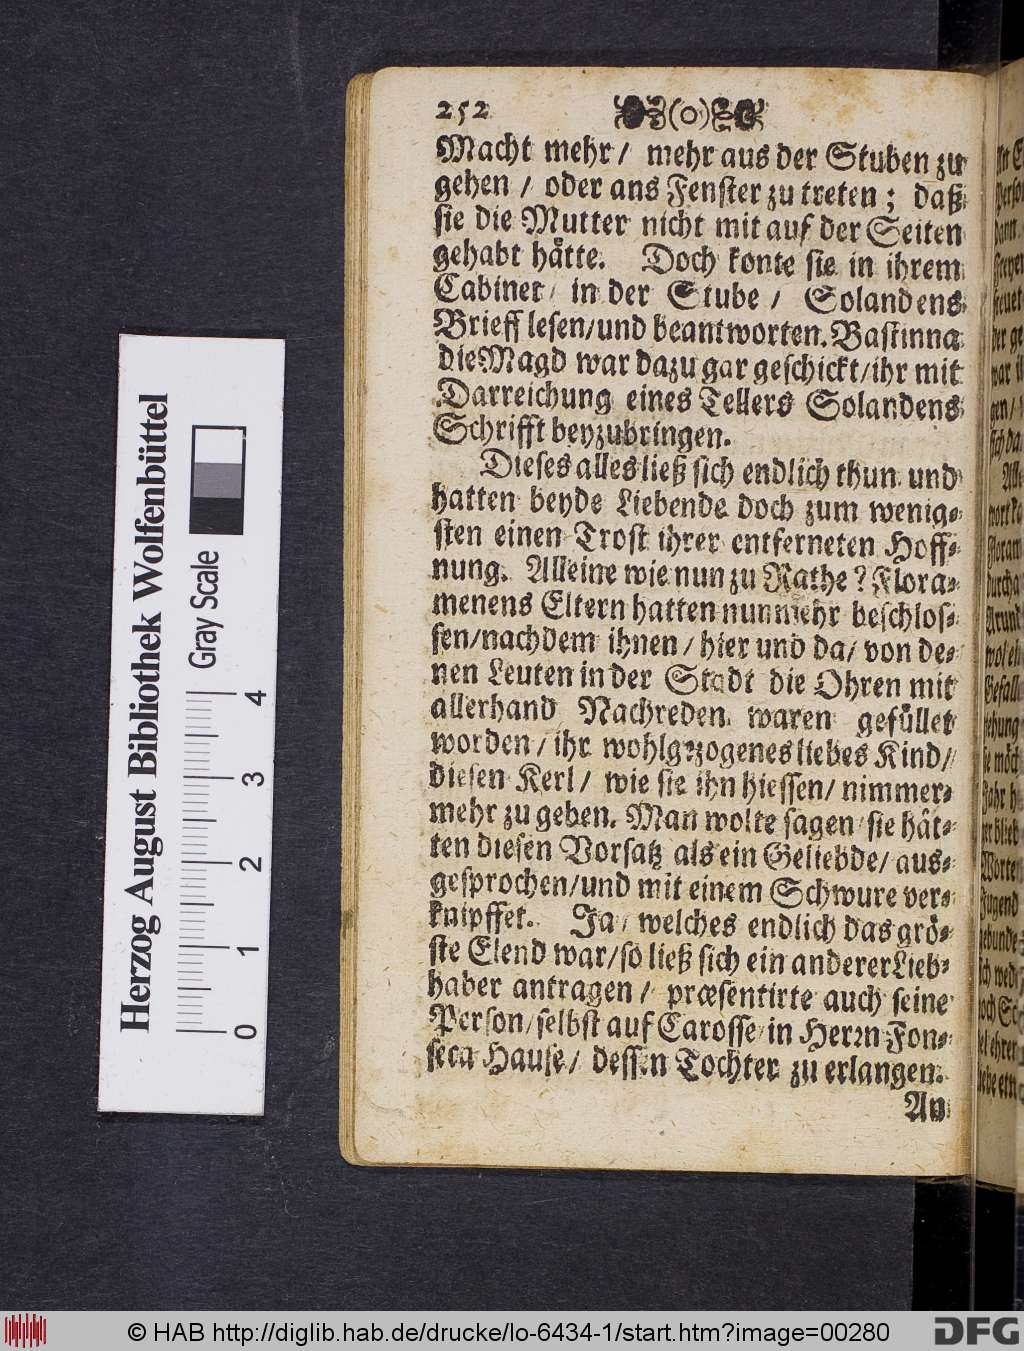 252 (o)
Macht mehr / mehr aus der Stuben zu
gehen / oder ans Fenster zu treten ; daß
sie die Mutter nicht mit auf der Seiten
gehabt hätte. Doch konte sie in ihrem
Cabinet / in der Stube / Solandens
Brieff lesen/und beantworten. Bastinna
die Magd war dazu gar geschickt/ihr mit
Darreichung eines Tellers Solandens
Schrifft beyzubringen.
Dieses alles ließ sich endlich thun und
hatten beyde Liebende doch zum wenig-
sten einen Trost ihrer entferneten Hoff-
nung. Alleine wie nun zu Rathe? Flora-
menens Eltern hatten nunmehr beschlos-
sen/nachdem ihnen / hier und da/ von de-
nen Leuten in der Stadt die Ohren mit
allerhand Nachreden waren gefüllet
worden / ihr wohlgezogenes liebes Kind/
diesen Kerl / wie sie ihn hiessen/ nimmer-
mehr zu geben. Man wolte sagen / sie hät-
ten diesen Vorsatz als ein Geliebde/ aus-
gesprochen/und mit einem Schwure ver-
knipffet. Ja / welches endlich das grö-
ste Elend war/so ließ sich ein anderer Lieb-
haber antragen / præsentirte auch seine
Person/selbst auf Carosse in Herrn Fon-
seca Hause/ dessen Tochter zu erlangen.
An
Herzog August Bibliothek Wolfenbüttel
Gray Scale
0 1 2 3 4
© HAB http://diglib.hab.de/drucke/lo-6434-1/start.htm?image=00280
DFG